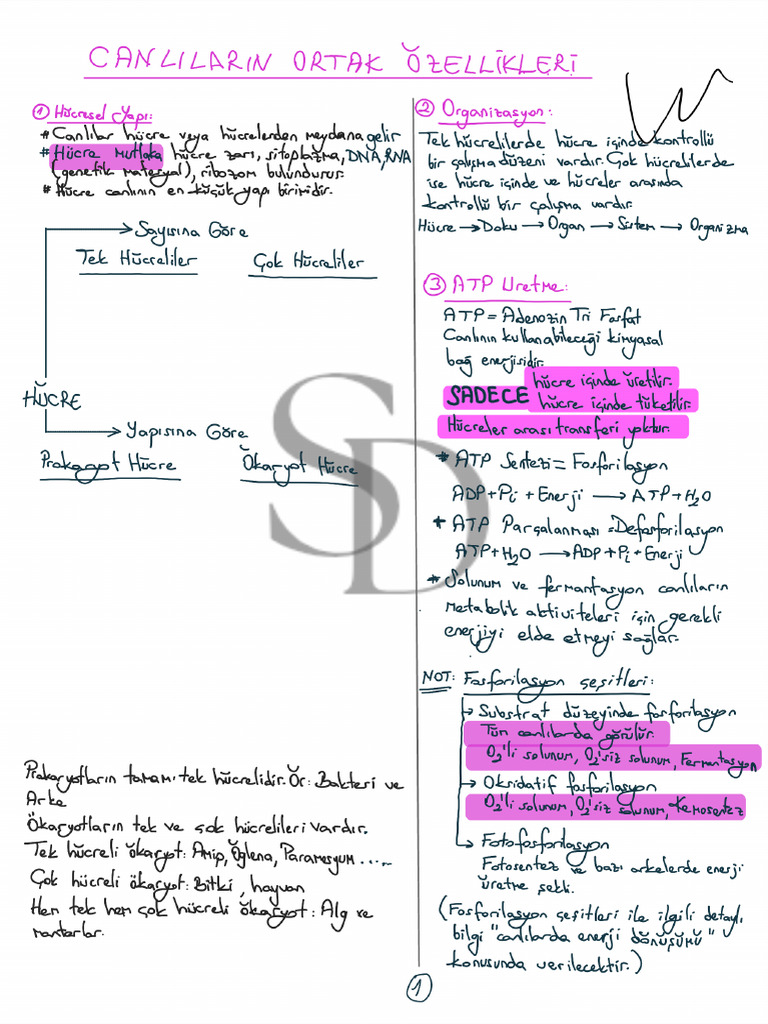 CANLILARIN ORTAK ÖZELLİKLERİ
① Hücresel Yapı:
* Canlılar hücre veya hücrelerden meydana gelir
* Hücre Mutlaka hücre zarı, sitoplazma, DNA, RNA
(genetik materyal), ribozom bulundurur.
* Hücre canlının en küçük yapı birimidir.
Sayısına Göre
Tek Hücreliler Çok Hücreliler
HÜCRE
Yapısına Göre
Prokaryot Hücre Ökaryot Hücre
Prokaryotların tamamı tek hücrelidir. Ör: Bakteri ve
Arke
Ökaryotların tek ve çok hücrelileri vardır.
Tek hücreli ökaryot: Amip, Öglena, Paramesyum ....
Çok hücreli ökaryot: Bitki, hayvan
Hem tek hem çok hücreli ökaryot: Alg ve
mantarlar.
② Organizasyon:
Tek hücrelilerde hücre içinde kontrollü
bir çalışma düzeni vardır. Çok hücrelilerde
ise hücre içinde ve hücreler arasında
kontrollü bir çalışma vardır.
Hücre → Doku → Organ → Sistem → Organizma
③ ATP Üretme:
ATP = Adenozin Tri Fosfat
Canlının kullanabileceği kimyasal
bağ enerjisidir.
SADECE hücre içinde üretilir.
hücre içinde tüketilir.
Hücreler arası transferi yoktur.
* ATP Sentezi = Fosforilasyon
ADP + Pi + Enerji → ATP + H₂O
* ATP Parçalanması = Defosforilasyon
ATP + H₂O → ADP + Pi + Enerji
* Solunum ve fermantasyon canlıların
metabolik aktiviteleri için gerekli
enerjiyi elde etmeyi sağlar.
NOT: Fosforilasyon çeşitleri:
→ Substrat düzeyinde fosforilasyon
Tüm canlılarda görülür.
O₂'li solunum, O₂'siz solunum, Fermantasyon
→ Oksidatif fosforilasyon
O₂'li solunum, O₂'siz solunum, Kemosentez
→ Fotofosforilasyon
Fotosentez ve bazı arkelerde enerji
üretme şekli.
(Fosforilasyon çeşitleri ile ilgili detaylı
bilgi "canlılarda enerji dönüşümü"
konusunda verilecektir.)
1
SD